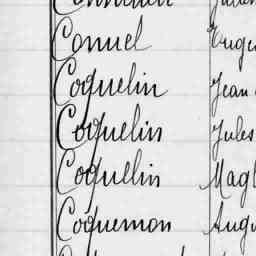 Conuel Euge
Coquelin Jean
Coquelin Jules
Coquelin Magl
Coquemon Augu